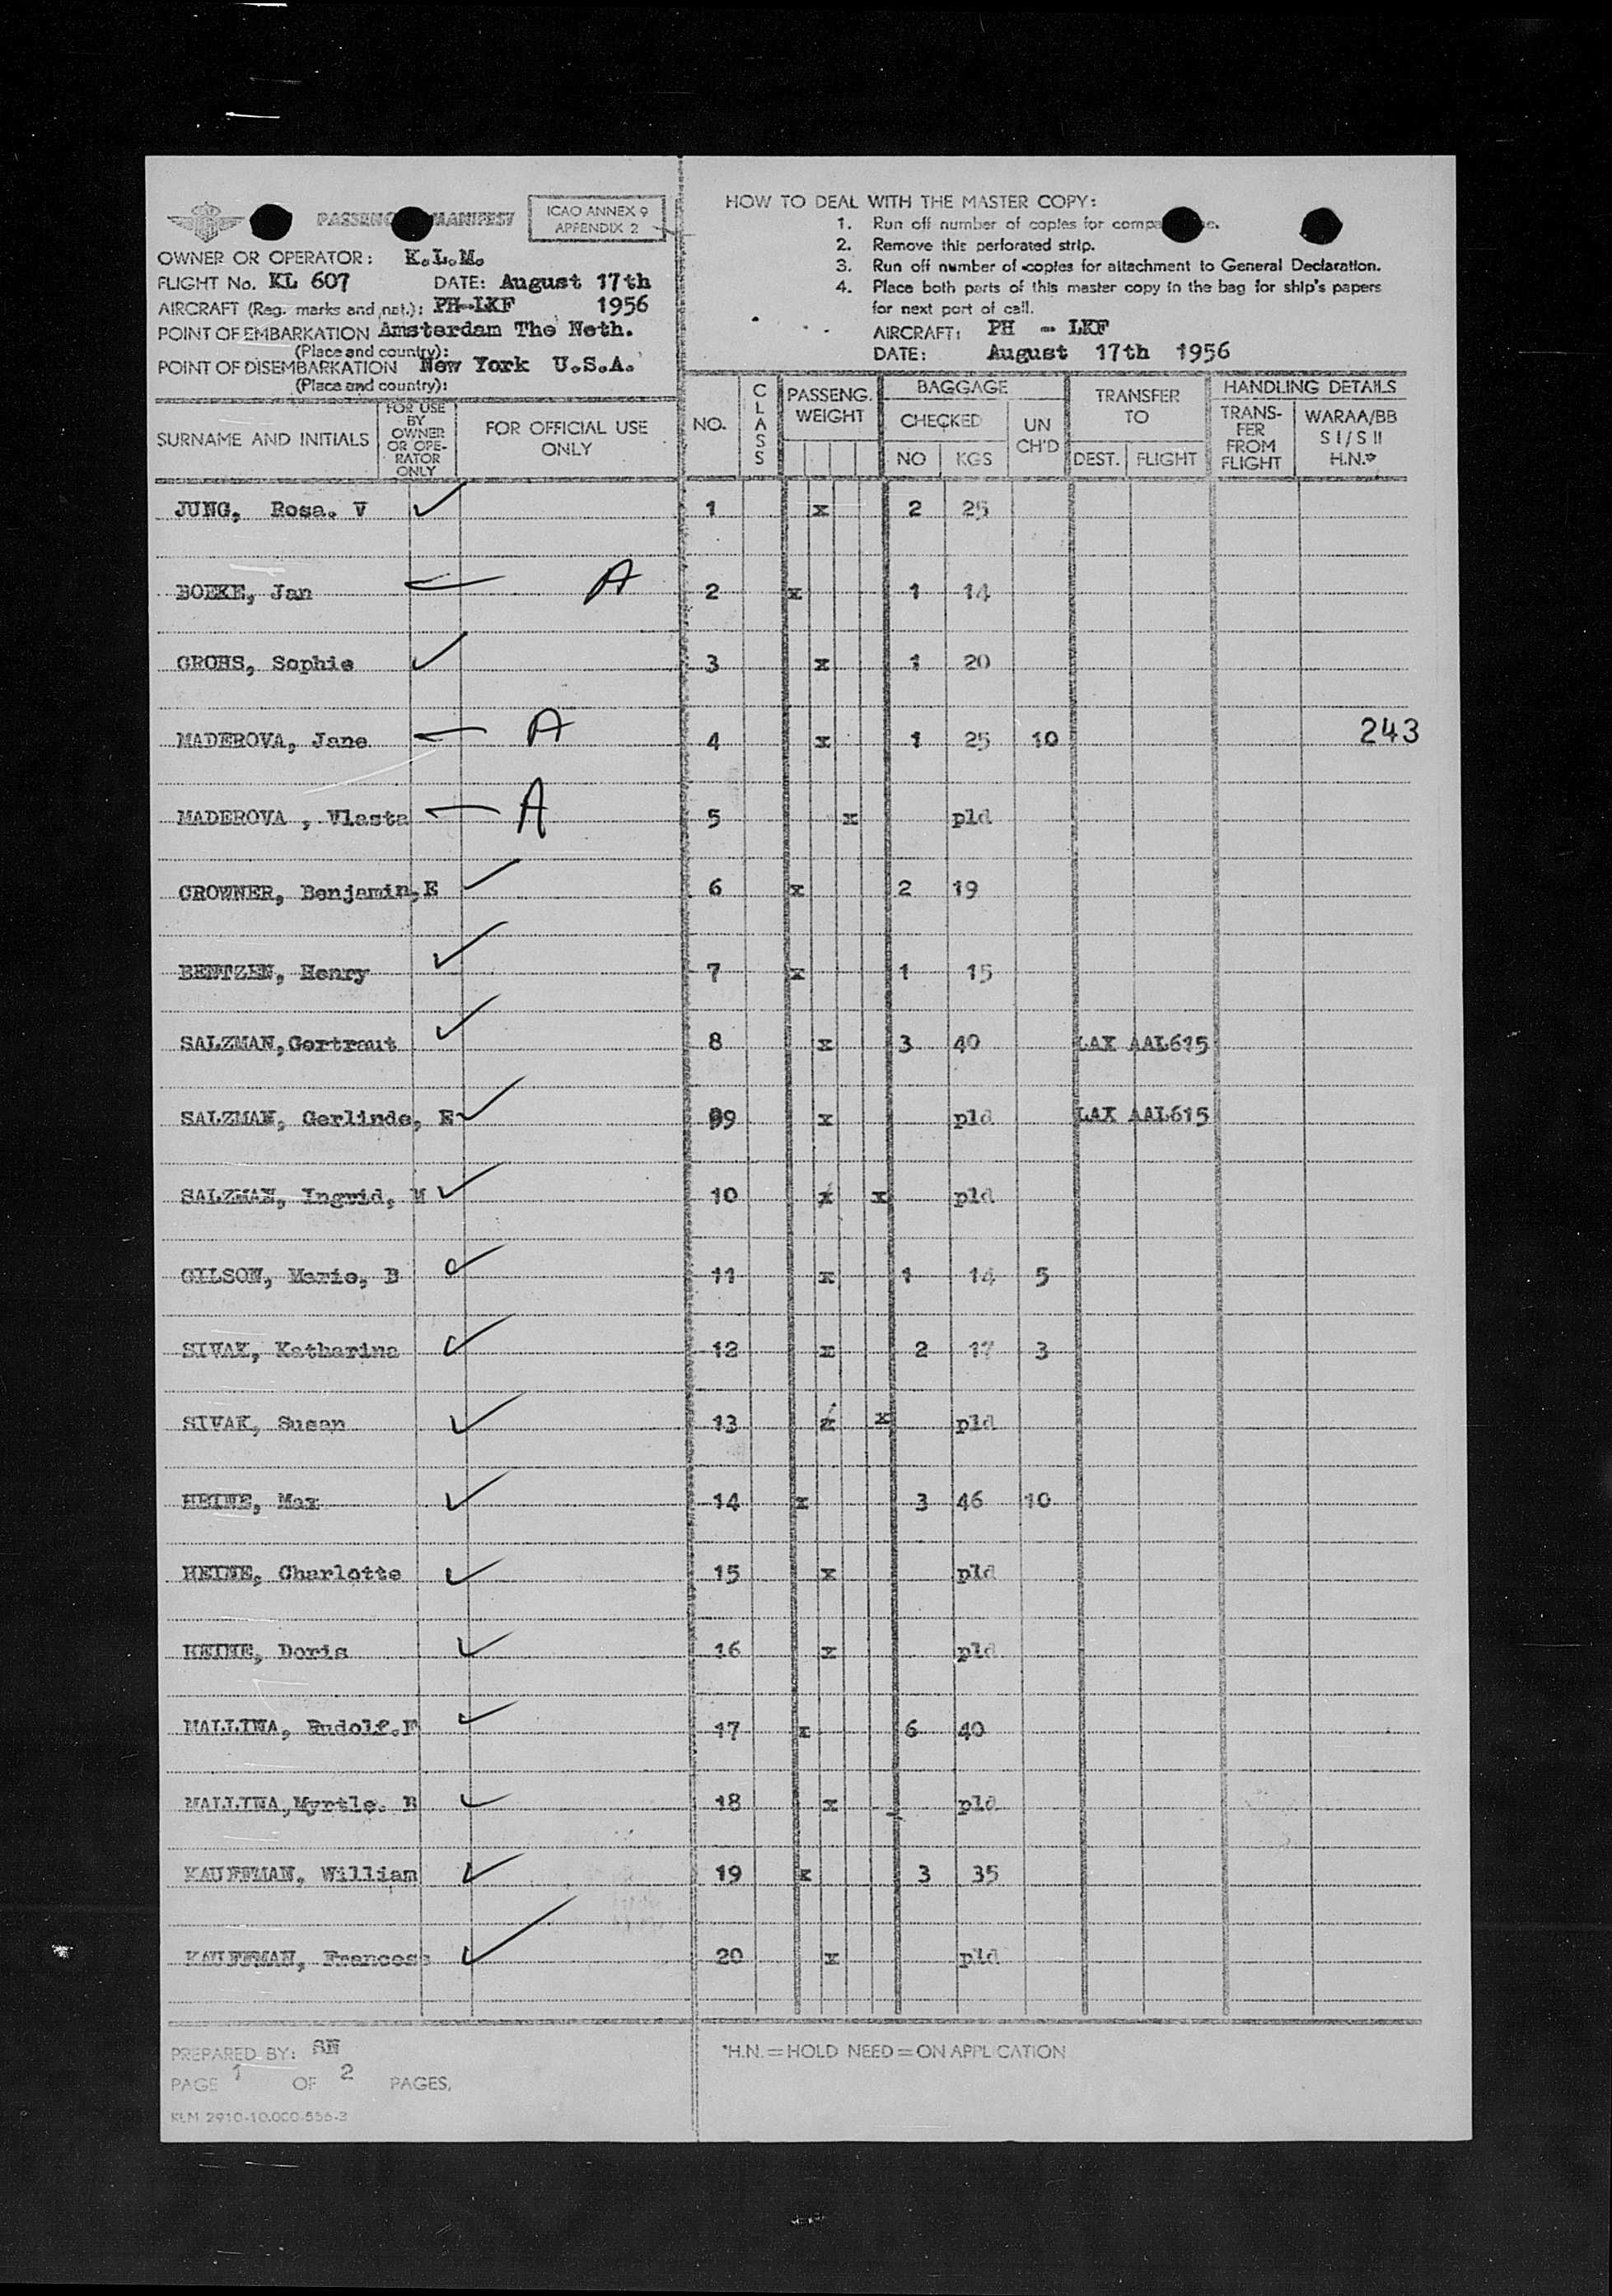 PASSENG MANIFEST
ICAO ANNEX 9
APPENDIX 2
OWNER OR OPERATOR: K.L.M.
FLIGHT No. KL 607 DATE: August 17th
AIRCRAFT (Reg. marks and nat.): PH-LKF 1956
POINT OF EMBARKATION Amsterdam The Neth.
(Place and country):
POINT OF DISEMBARKATION New York U.S.A.
(Place and country):
HOW TO DEAL WITH THE MASTER COPY:
1. Run off number of copies for compa e.
2. Remove this perforated strip.
3. Run off number of copies for attachment to General Declaration.
4. Place both parts of this master copy in the bag for ship's papers
for next port of call.
AIRCRAFT: PH - LKF
DATE: August 17th 1956
SURNAME AND INITIALS
FOR USE
BY
OWNER
OR OPE-
RATOR
ONLY
FOR OFFICIAL USE
ONLY
NO.
CLASS
PASSENG.
WEIGHT
BAGGAGE
CHECKED
NO KGS
UN
CH'D
TRANSFER
TO
DEST. FLIGHT
HANDLING DETAILS
TRANS-
FER
FROM
FLIGHT
WARAA/BB
S I / S II
H.N.*
JUNG, Rosa. V ✓ 1 x 2 25
BOEKE, Jan ← A 2 x 1 14
GROHS, Sophie ✓ 3 x 1 20
MADEROVA, Jane ← A 4 x 1 25 10 243
MADEROVA , Vlasta ← A 5 x pld
CROWNER, Benjamin,E ✓ 6 x 2 19
BENTZEN, Henry ✓ 7 x 1 15
SALZMAN,Gertraut ✓ 8 x 3 40 LAX AAL615
SALZMAN, Gerlinde, E ✓ 9 x pld LAX AAL615
SALZMAN, Ingrid, M ✓ 10 x x pld
GILSON, Marie, B ✓ 11 x 1 14 5
SIVAK, Katharina ✓ 12 x 2 17 3
SIVAK, Susan ✓ 13 x x pld
HEINE, Max ✓ 14 x 3 46 10
HEINE, Charlotte ✓ 15 x pld
HEINE, Doris ✓ 16 x pld
MALLINA, Rudolf.F ✓ 17 x 6 40
MALLINA,Myrtle. B ✓ 18 x pld
KAUFFMAN, William ✓ 19 x 3 35
KAUFFMAN, Frances ✓ 20 x pld
PREPARED BY: SN
PAGE 1 OF 2 PAGES,
KLM 2910-10.000-556-3
*H.N. = HOLD NEED = ON APPLICATION